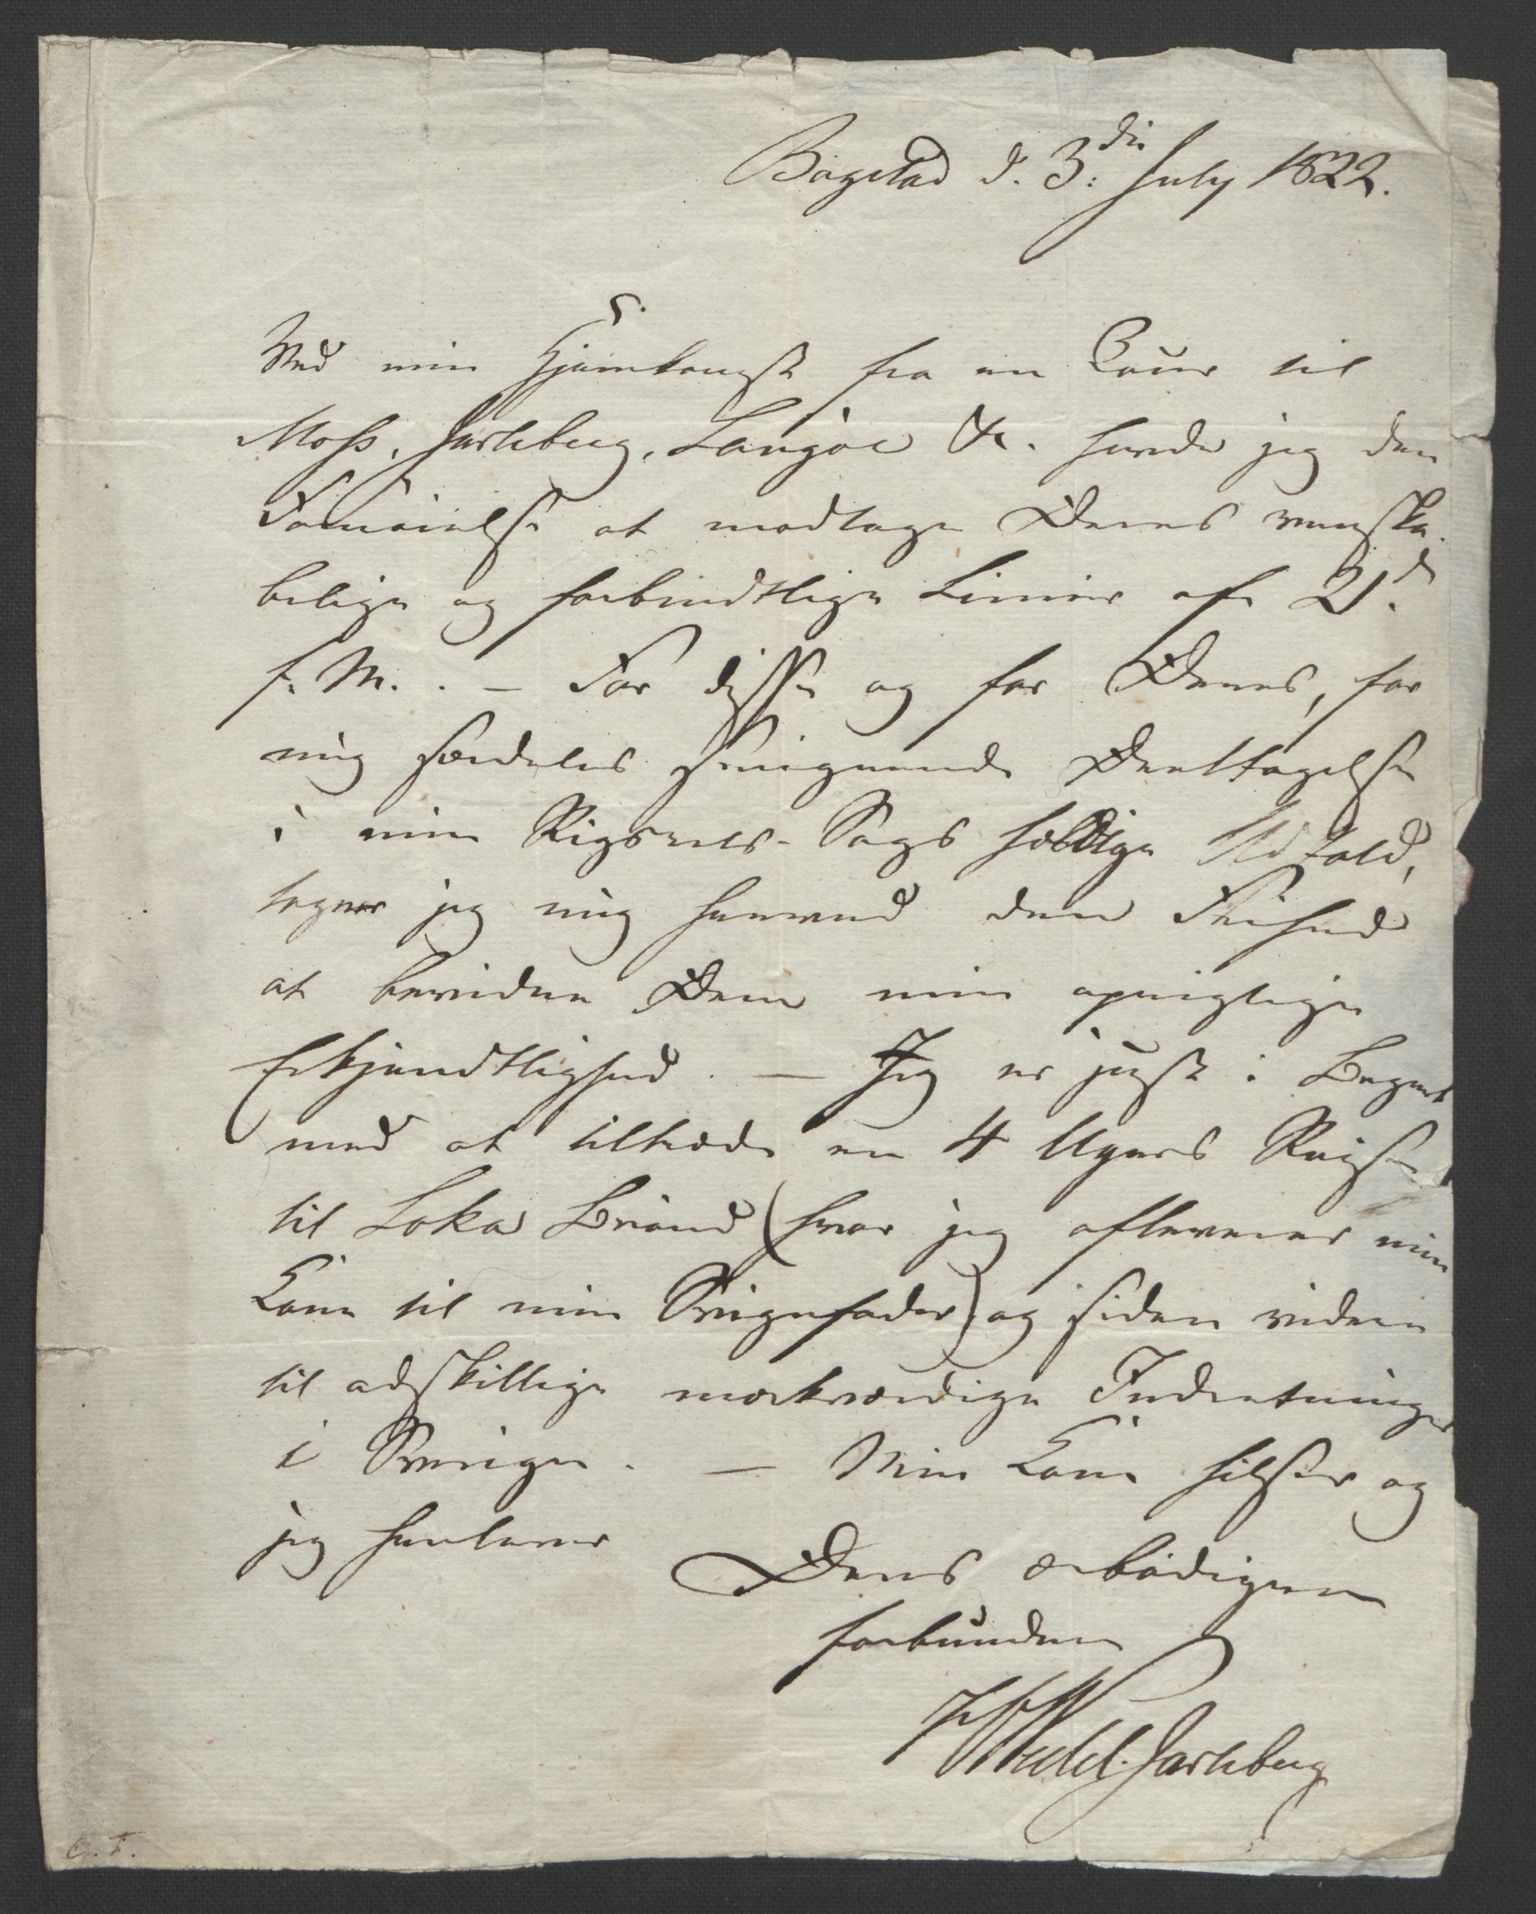 Bogstad d. 3die July 1822.
S.
Ved min Hjemkomst fra en Tour til
Moss, Jarlsberg, Langöe &c. havde jeg den
Fornöielse at modtage Deres venska-
belige og forbindtlige Linier af 21d
f. M. . – For disse og for Deres, for
mig særdeles smigrende Deeltagelse
i min Rigsrets-Sags heldige Udfald,
tager jeg mig herved den Frihed
at bevidne Dem min oprigtige
Erkjendtlighed. – Jeg er just i Begreb
med at tiltræde en 4 Ugers Reise
til Loka Brönd (hvor jeg afleverer min
Kone til min Svigerfader) og siden videre
til adskillige mærkværdige Indretninger
i Sverige. – Min Kone hilser og
jeg henlever
Deres ærbödigen
forbunden
Wedel Jarlsberg